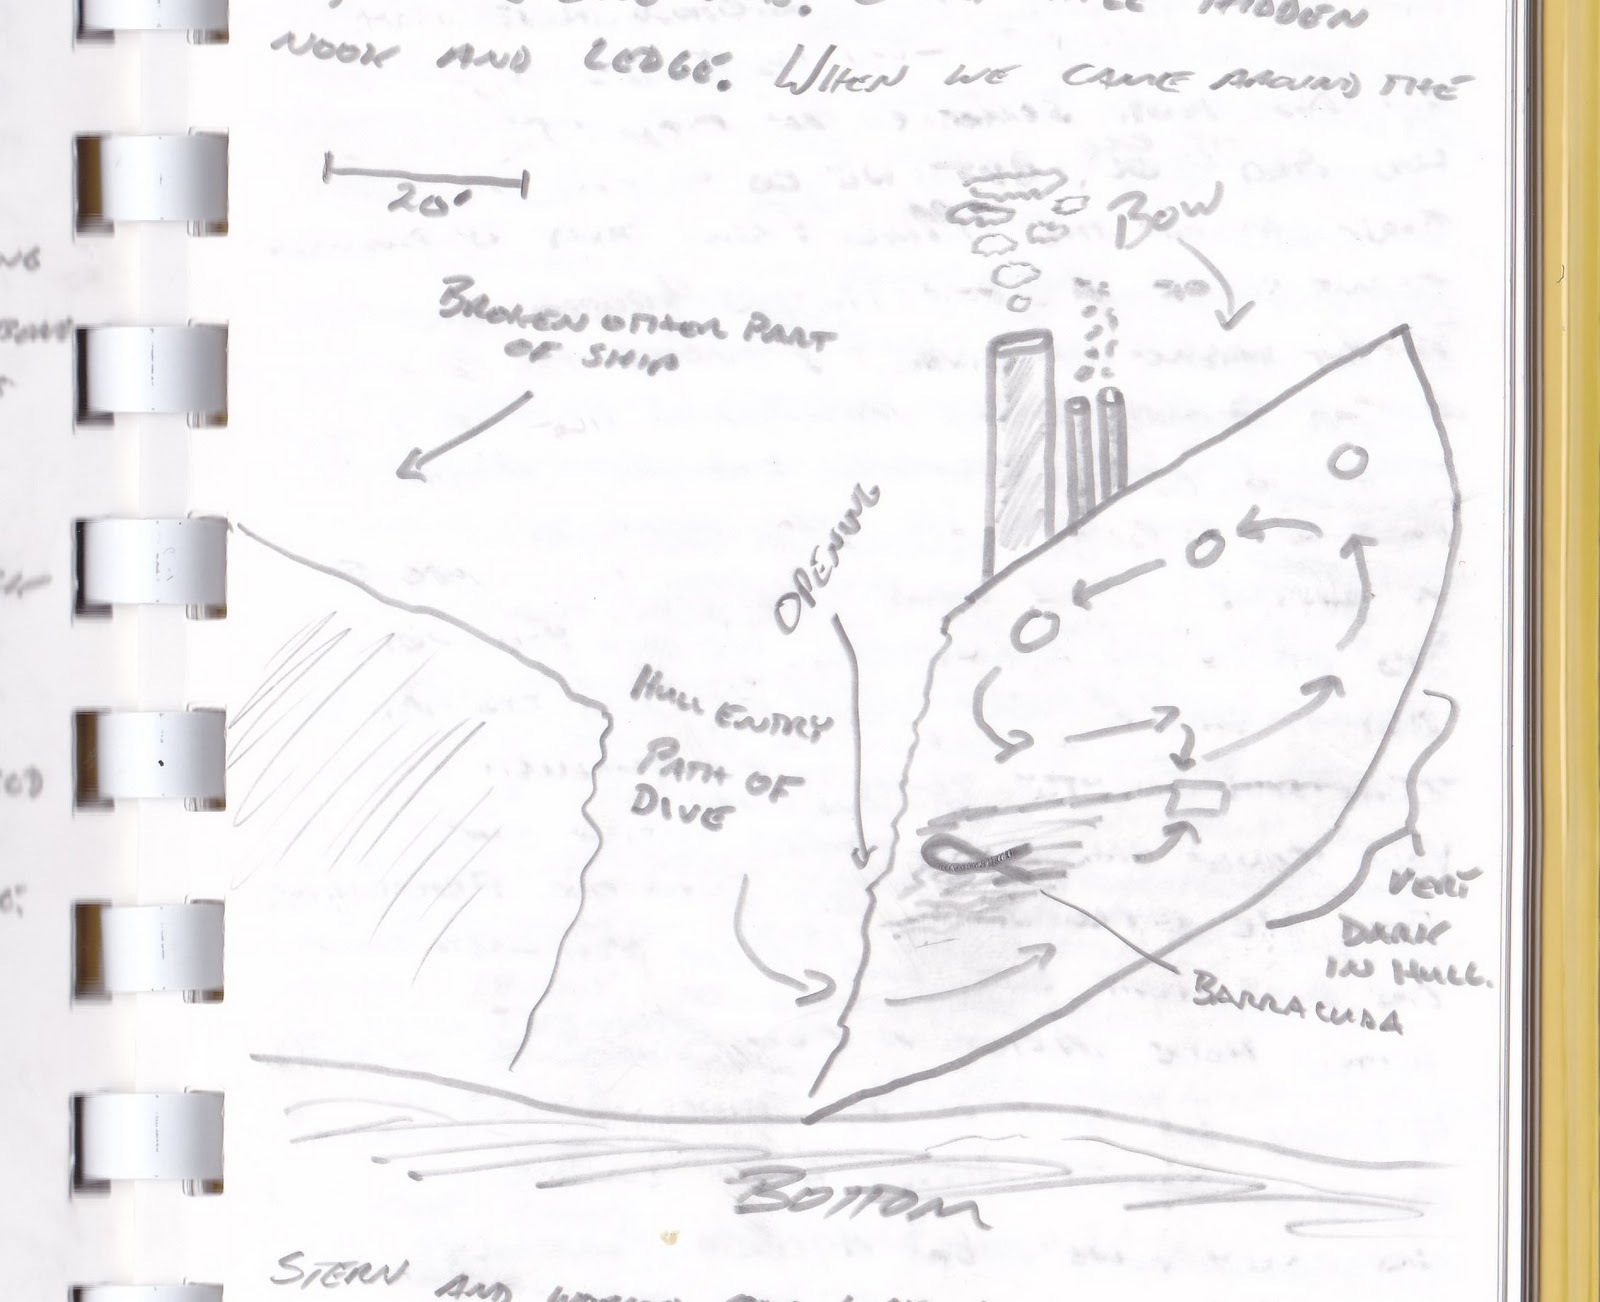 HIDDEN
NOOK AND LEDGE. WHEN WE CAME AROUND THE
20'
BOW
BROKEN OTHER PART
OF SHIP
OPENING
HULL ENTRY
PATH OF
DIVE
VERY
DARK
IN HULL.
BARRACUDA
BOTTOM
STERN AND